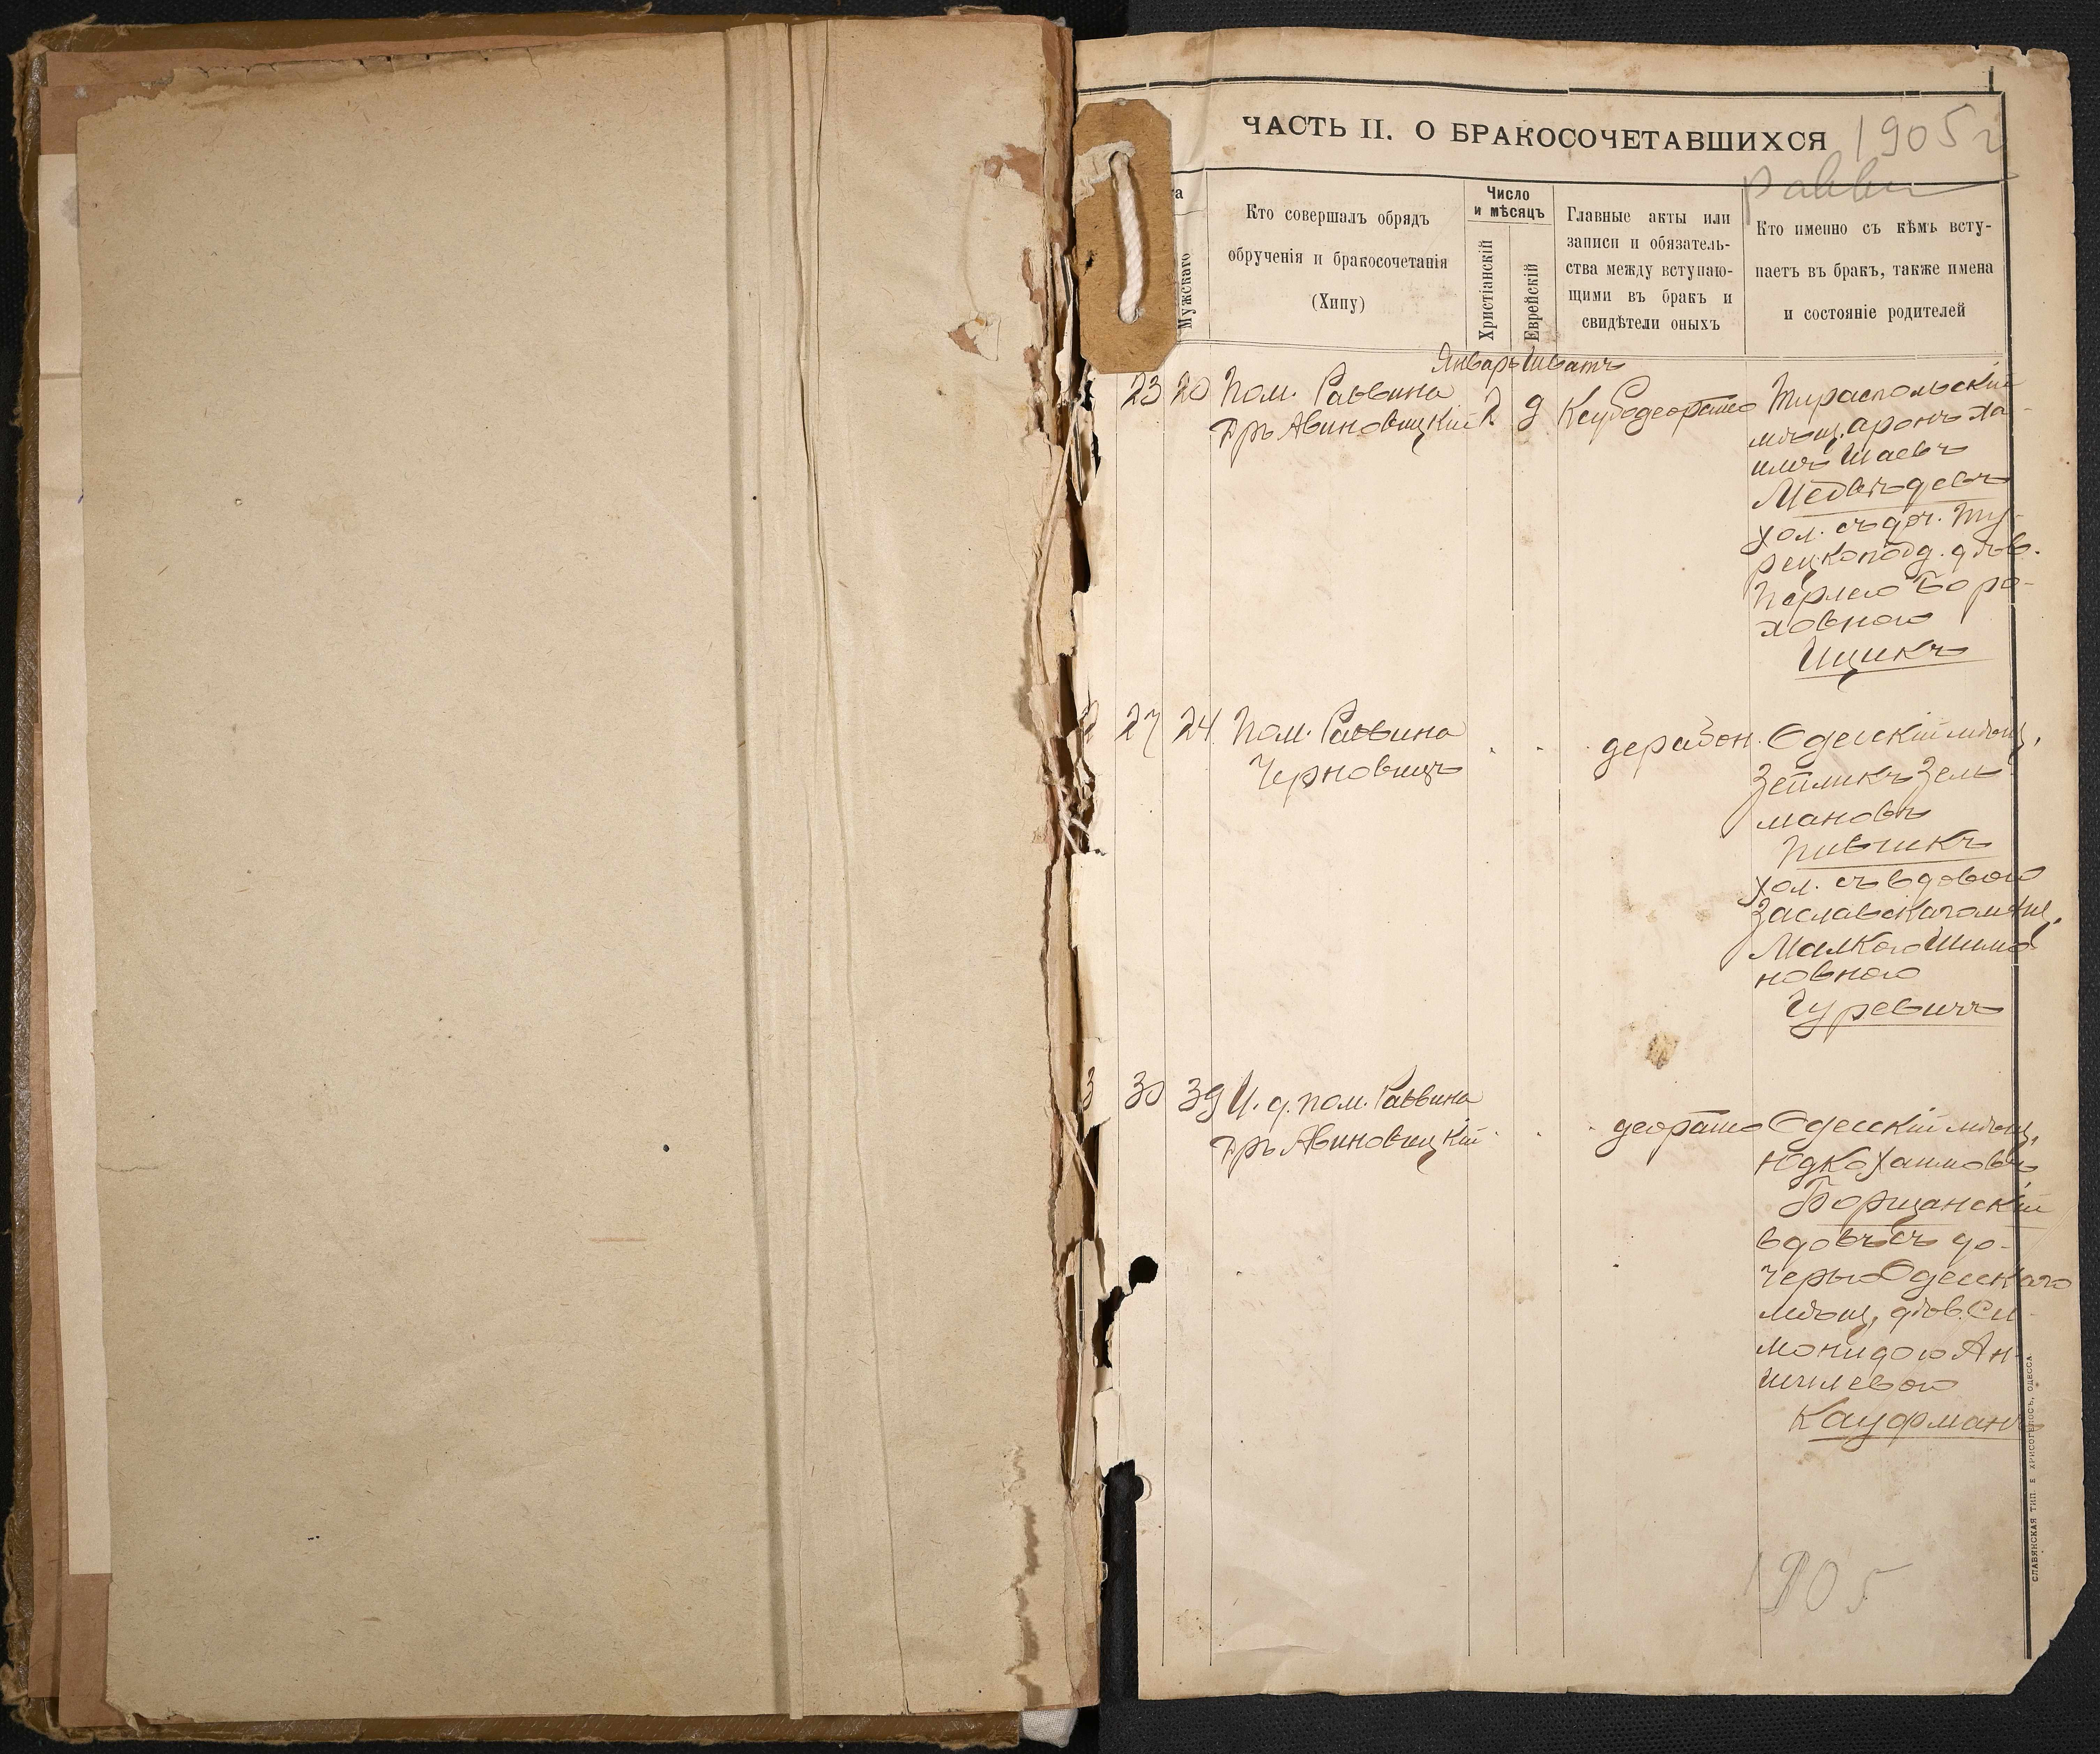 ЧАСТЬ II. О БРАКОСОЧЕТАВШИХСЯ
1905 г
Мужскаго
Кто совершалъ обрядъ
обрученія и бракосочетанія
(Хипу)
Число
и мѣсяцъ
Христіанскій
Еврейскій
Главные акты или
записи и обязатель-
ства между вступаю-
щими въ бракъ и
свидѣтели оныхъ
Кто именно съ кѣмъ всту-
паетъ въ бракъ, также имена
и состояніе родителей
Январь Шватъ
23 20 Пом. Раввина
Д-ръ Авиновицкій 2 9
Тираспольскій
мѣщ. Аронъ Ха-
имъ Шаевъ
Медвѣдевъ
хол. съ доч. Ту-
рецкопод. дѣв.
Перлею Боро-
ховною
Ицикъ
2 27 24 Пом. Раввина
Черновицъ
дерабон. Одесскій мѣщ.
Зейликъ Зель
мановъ
Пивникъ
хол. съ вдовою
Заславскаго мѣщ.
Малкою Шимо
новною
Гуревичъ
3 30 39 И. д. пом. Раввина
Д-ръ Авиновицкій
Одесскій мѣщ.
Юдко Хаимовъ
Борщанскій
вдовъ съ до-
черью Одесскаго
мѣщ. дѣв. Си-
монидою Ан-
шилевою
Кауфманъ
1905
СЛАВЯНСКАЯ ТИП. Е ХРИСОГЕЛОСЪ, ОДЕССА.